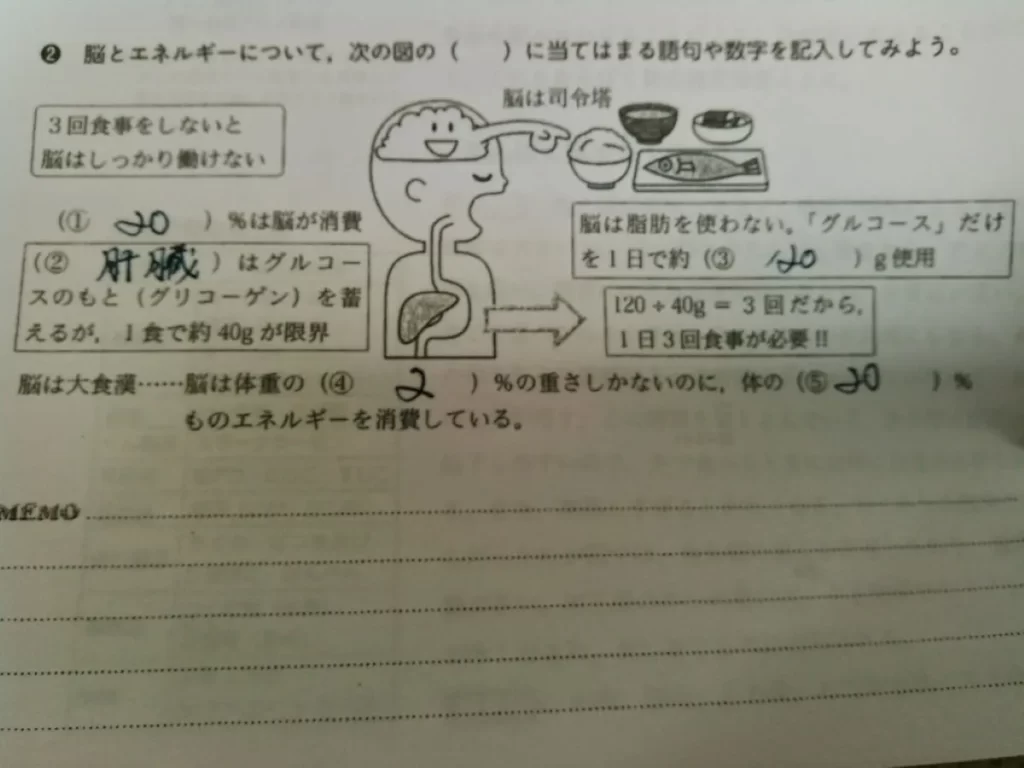 ❷ 脳とエネルギーについて，次の図の（　　）に当てはまる語句や数字を記入してみよう。
脳は司令塔
3回食事をしないと
脳はしっかり働けない
（① 20 ）％は脳が消費
（② 肝臓 ）はグルコー
スのもと（グリコーゲン）を蓄
えるが，1食で約40gが限界
脳は脂肪を使わない。「グルコース」だけ
を1日で約（③ 120 ）g使用
120÷40g＝3回だから，
1日3回食事が必要!!
脳は大食漢……脳は体重の（④ 2 ）％の重さしかないのに，体の（⑤ 20 ）％
ものエネルギーを消費している。
MEMO